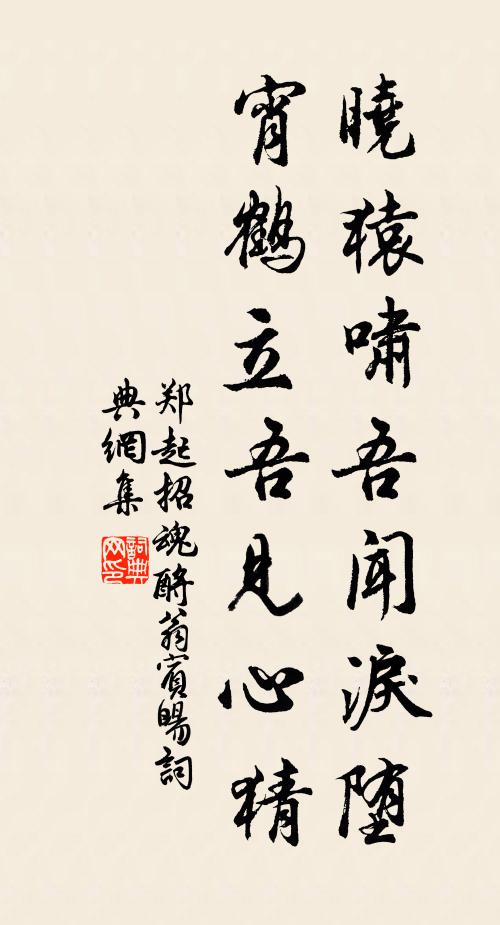 曉猿嘯吾聞淚墮
宵鶴立吾見心猜
郑起招魂酹翁賓暘詞
典網集
詞典网印